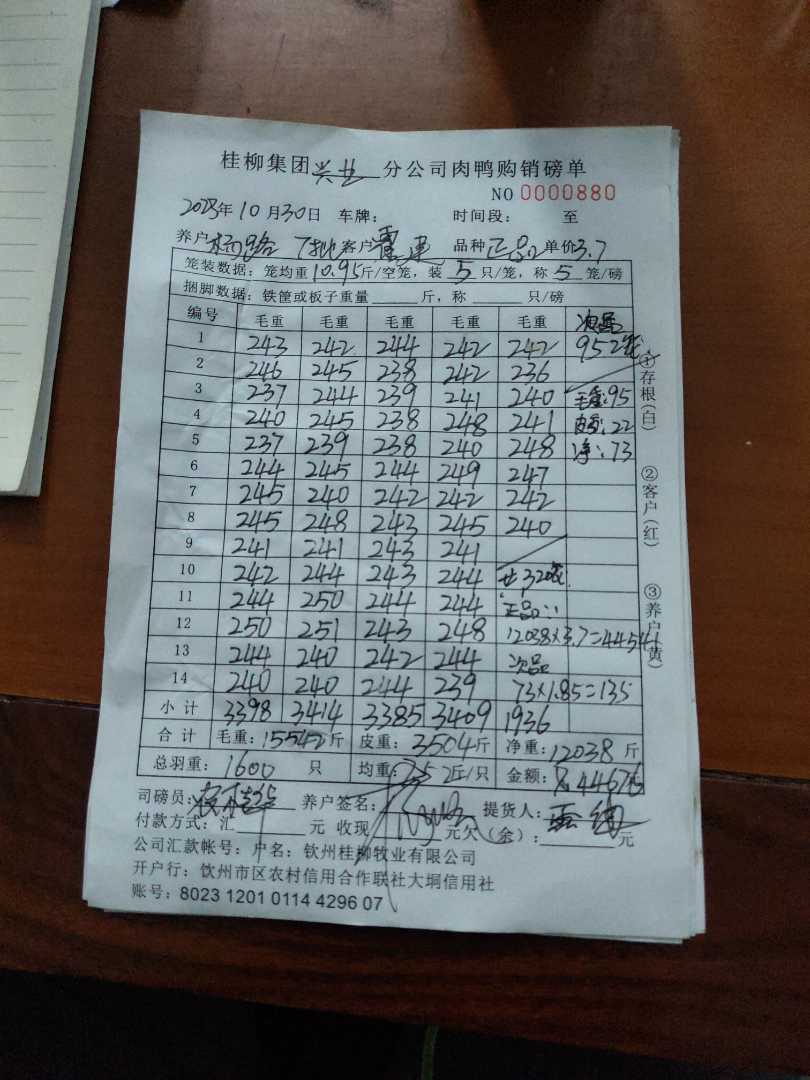 桂柳集团兴业分公司肉鸭购销磅单
NO 0000880
2023年10月30日 车牌: 时间段: 至
养户杨路 7批 客户 品种正品 单价3.7
笼装数据:笼均重10.95斤/空笼,装5只/笼,称5笼/磅
捆脚数据:铁筐或板子重量____斤,称____只/磅
编号 毛重 毛重 毛重 毛重 毛重 次品
1 243 242 244 242 242 95 2笼
2 246 245 238 242 236
3 237 244 239 241 240 毛重:95
4 240 245 238 248 241 皮重:22
5 237 239 238 240 248 净:73
6 244 245 244 249 247
7 245 240 242 242 242
8 245 248 243 245 240
9 241 241 243 241
10 242 244 243 244 共320笼
11 244 250 244 244 正品:
12 250 251 243 248 12038×3.7=44541
13 244 240 242 244 次品
14 240 240 244 239 73×1.85=135
小计 3398 3414 3385 3409 1936
合计 毛重:15542斤 皮重:3504斤 净重:12038斤
总羽重:1600只 均重:7.52斤/只 金额:44676
司磅员: 养户签名: 提货人:
付款方式:汇____元 收现____元欠(余):____元
公司汇款帐号:户名:钦州桂柳牧业有限公司
开户行:钦州市区农村信用合作联社大垌信用社
账号:8023 1201 0114 4296 07
①存根(白)
②客户(红)
③养户(黄)